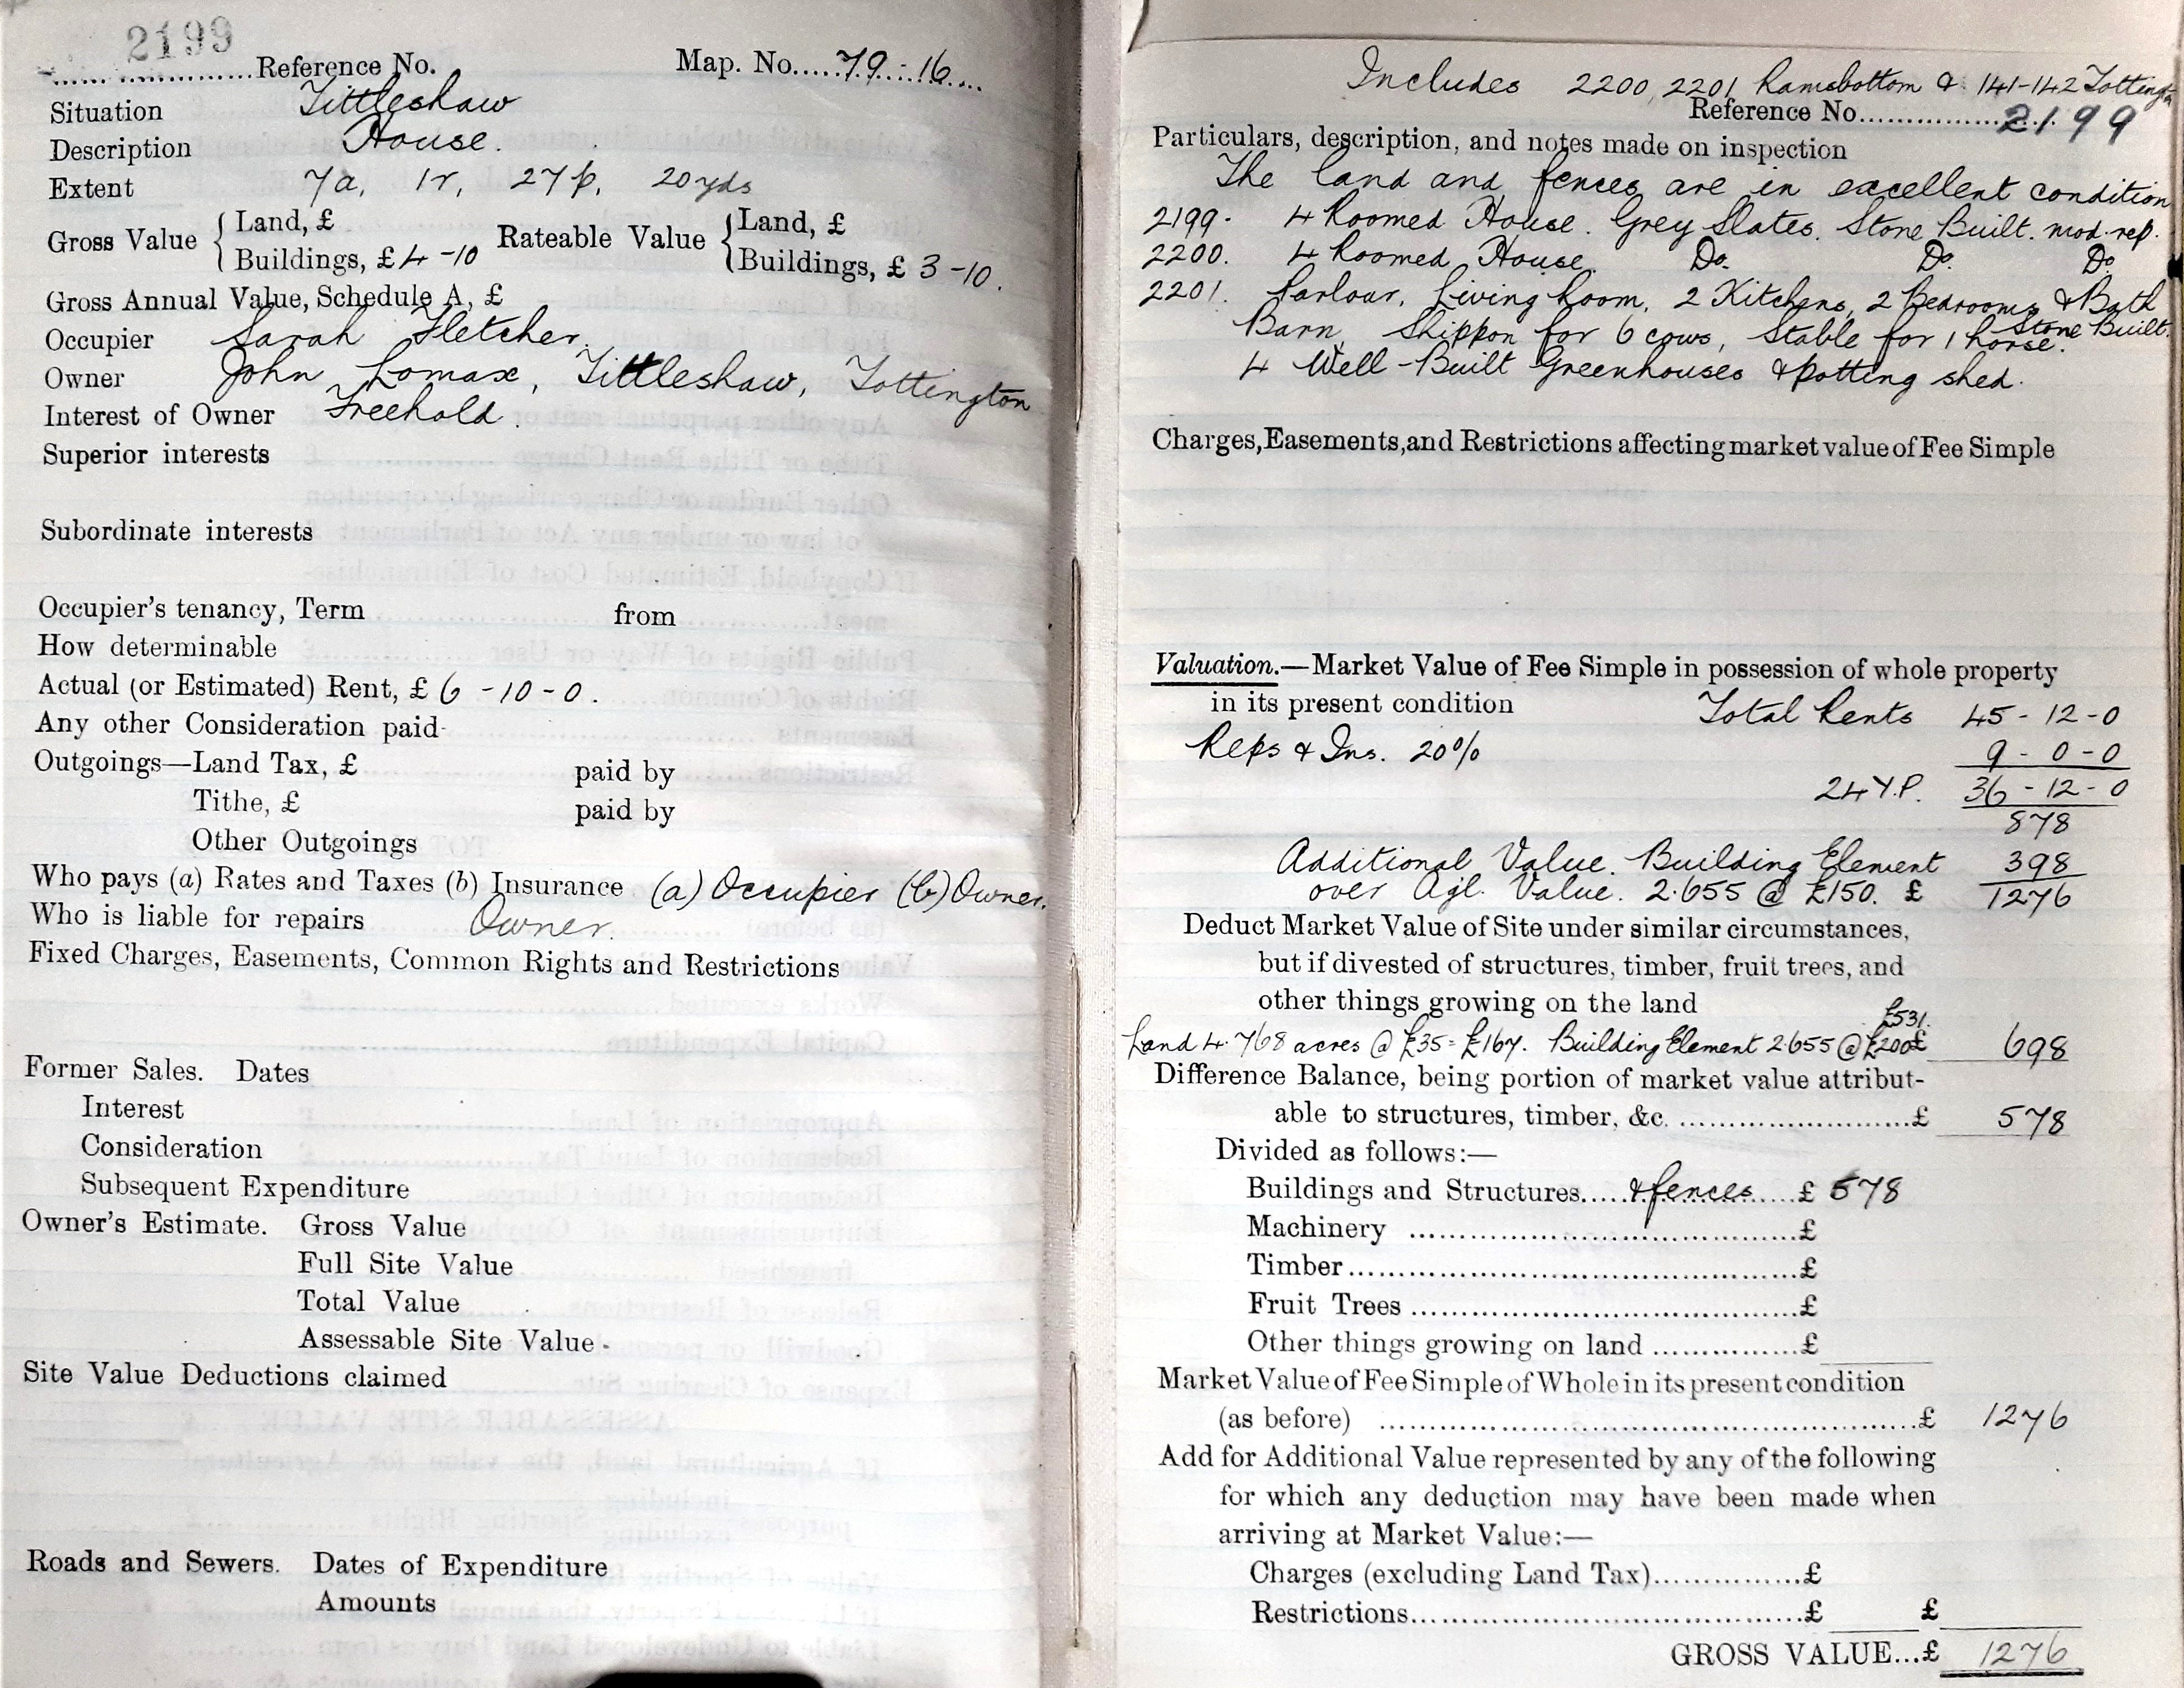 2199
Reference No. Map. No. 79-16
Situation Tittleshaw
Description House.
Extent 7a, 1r, 27p, 20yds
Gross Value { Land, £ Rateable Value { Land, £
Buildings, £ 4-10 Buildings, £ 3-10.
Gross Annual Value, Schedule A, £
Occupier Sarah Fletcher.
Owner John Lomax, Tittleshaw, Tottington
Interest of Owner Freehold.
Superior interests
Subordinate interests
Occupier's tenancy, Term from
How determinable
Actual (or Estimated) Rent, £ 6-10-0.
Any other Consideration paid
Outgoings—Land Tax, £ paid by
Tithe, £ paid by
Other Outgoings
Who pays (a) Rates and Taxes (b) Insurance (a) Occupier (b) Owner.
Who is liable for repairs Owner.
Fixed Charges, Easements, Common Rights and Restrictions
Former Sales. Dates
Interest
Consideration
Subsequent Expenditure
Owner's Estimate. Gross Value
Full Site Value
Total Value
Assessable Site Value
Site Value Deductions claimed
Roads and Sewers. Dates of Expenditure
Amounts
Includes 2200, 2201 Ramsbottom & 141-142 Tottington
Reference No. 2199
Particulars, description, and notes made on inspection
The land and fences are in excellent condition
2199. 4 Roomed House. Grey Slates. Stone Built. mod. rep.
2200. 4 Roomed House. Do. Do. Do
2201. Parlour, Living Room, 2 Kitchens, 2 Bedrooms & Bath
Barn, Shippon for 6 cows, Stable for 1 horse. Stone Built.
4 Well-Built Greenhouses & potting shed.
Charges, Easements, and Restrictions affecting market value of Fee Simple
Valuation.—Market Value of Fee Simple in possession of whole property
in its present condition Total Rents 45-12-0
Reps & Ins. 20% 9-0-0
24 Y.P. 36-12-0
878
Additional Value. Building Element 398
over Agl. Value. 2.655 @ £150. £ 1276
Deduct Market Value of Site under similar circumstances,
but if divested of structures, timber, fruit trees, and
other things growing on the land
£531.
Land 4.768 acres @ £35 = £167. Building Element 2.655 @ £200 £ 698
Difference Balance, being portion of market value attribut-
able to structures, timber, &c. £ 578
Divided as follows:—
Buildings and Structures & fences £ 578
Machinery £
Timber £
Fruit Trees £
Other things growing on land £
Market Value of Fee Simple of Whole in its present condition
(as before) £ 1276
Add for Additional Value represented by any of the following
for which any deduction may have been made when
arriving at Market Value:—
Charges (excluding Land Tax) £
Restrictions £ £
GROSS VALUE...£ 1276